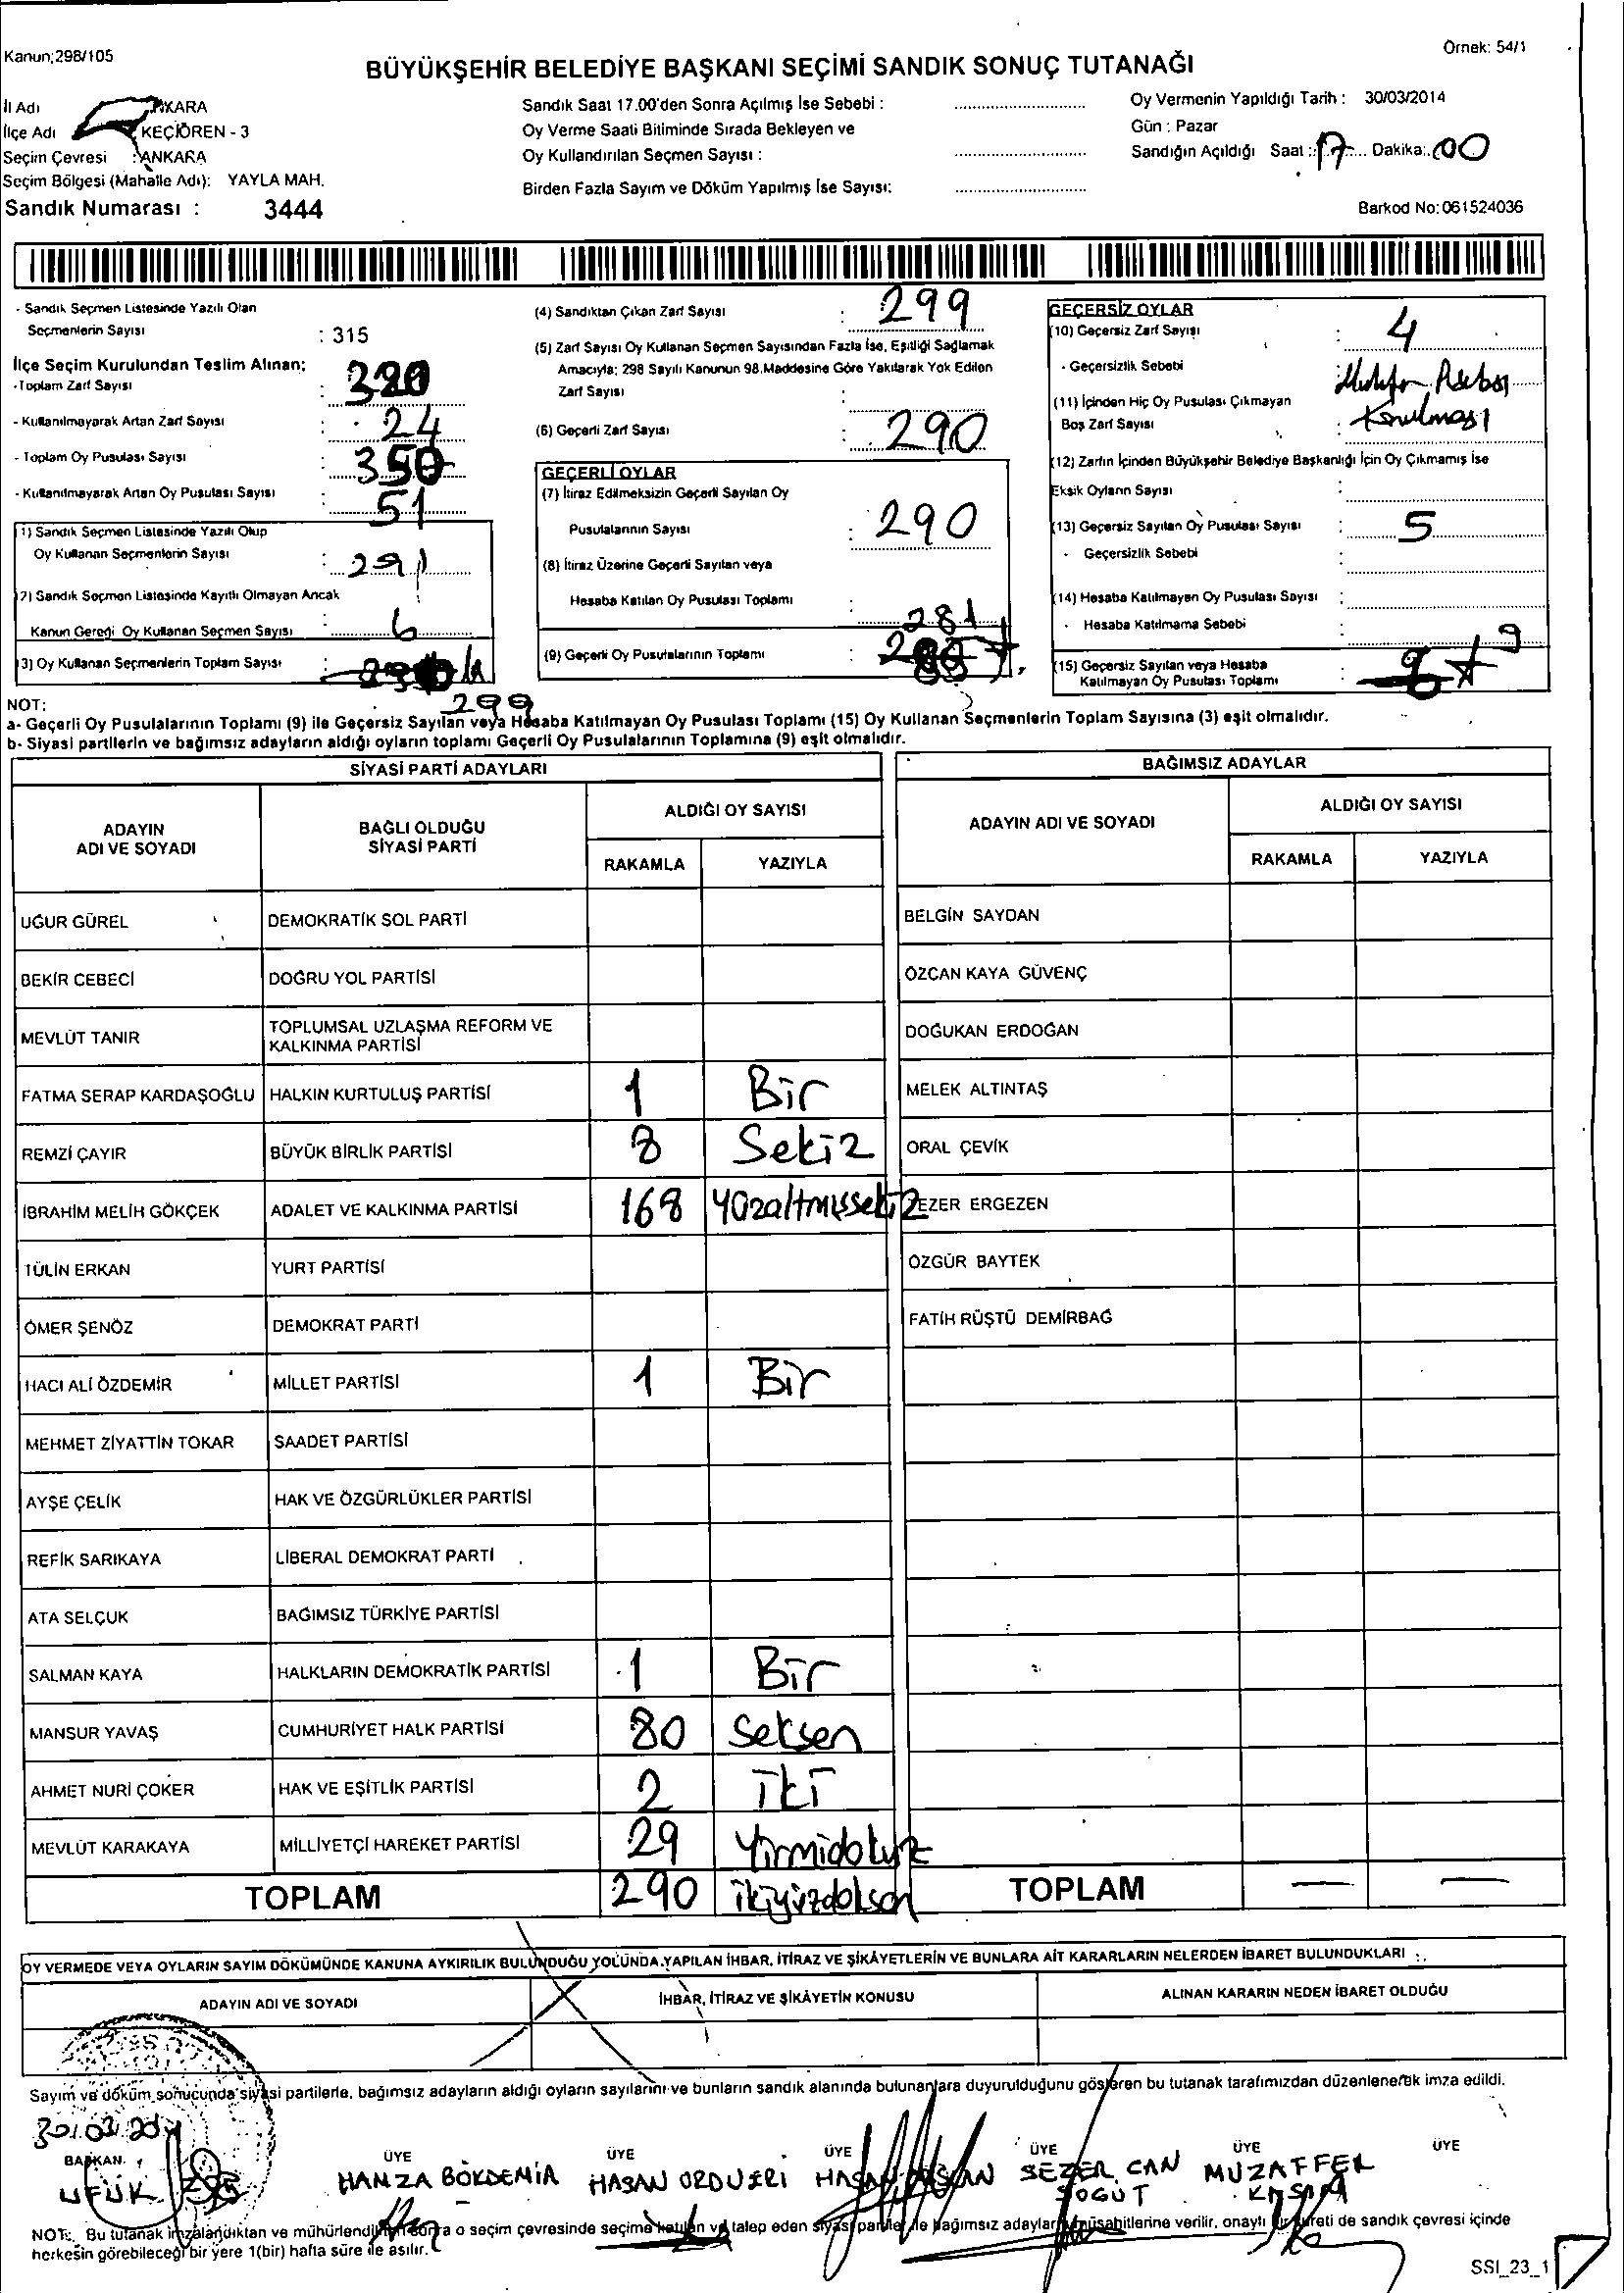 Kanun;298/105
Örnek: 54/1
BÜYÜKŞEHİR BELEDİYE BAŞKANI SEÇİMİ SANDIK SONUÇ TUTANAĞI
İl Adı ANKARA
İlçe Adı KEÇİÖREN - 3
Seçim Çevresi : ANKARA
Seçim Bölgesi (Mahalle Adı): YAYLA MAH.
Sandık Numarası : 3444
Sandık Saat 17.00'den Sonra Açılmış İse Sebebi :
Oy Verme Saati Bitiminde Sırada Bekleyen ve
Oy Kullandırılan Seçmen Sayısı :
Birden Fazla Sayım ve Döküm Yapılmış İse Sayısı:
Oy Vermenin Yapıldığı Tarih : 30/03/2014
Gün : Pazar
Sandığın Açıldığı Saat : 17 Dakika: 00
Barkod No: 061524036
- Sandık Seçmen Listesinde Yazılı Olan
Seçmenlerin Sayısı : 315
İlçe Seçim Kurulundan Teslim Alınan;
- Toplam Zarf Sayısı : 320
- Kullanılmayarak Artan Zarf Sayısı : 24
- Toplam Oy Pusulası Sayısı : 350
- Kullanılmayarak Artan Oy Pusulası Sayısı : 51
(1) Sandık Seçmen Listesinde Yazılı Olup
Oy Kullanan Seçmenlerin Sayısı : 291
(2) Sandık Seçmen Listesinde Kayıtlı Olmayan Ancak
Kanun Gereği Oy Kullanan Seçmen Sayısı : 6
(3) Oy Kullanan Seçmenlerin Toplam Sayısı :
299
(4) Sandıktan Çıkan Zarf Sayısı : 299
(5) Zarf Sayısı Oy Kullanan Seçmen Sayısından Fazla İse, Eşitliği Sağlamak
Amacıyla; 298 Sayılı Kanunun 98.Maddesine Göre Yakılarak Yok Edilen
Zarf Sayısı :
(6) Geçerli Zarf Sayısı : 290
GEÇERLİ OYLAR
(7) İtiraz Edilmeksizin Geçerli Sayılan Oy
Pusulalarının Sayısı : 290
(8) İtiraz Üzerine Geçerli Sayılan veya
Hesaba Katılan Oy Pusulası Toplamı : 281
(9) Geçerli Oy Pusulalarının Toplamı :
GEÇERSİZ OYLAR
(10) Geçersiz Zarf Sayısı : 4
- Geçersizlik Sebebi
(11) İçinden Hiç Oy Pusulası Çıkmayan
Boş Zarf Sayısı : Konulması
(12) Zarfın İçinden Büyükşehir Belediye Başkanlığı İçin Oy Çıkmamış İse
Eksik Oyların Sayısı :
(13) Geçersiz Sayılan Oy Pusulası Sayısı : 5
- Geçersizlik Sebebi :
(14) Hesaba Katılmayan Oy Pusulası Sayısı :
- Hesaba Katılmama Sebebi :
(15) Geçersiz Sayılan veya Hesaba
Katılmayan Oy Pusulası Toplamı : 9
NOT:
a- Geçerli Oy Pusulalarının Toplamı (9) ile Geçersiz Sayılan veya Hesaba Katılmayan Oy Pusulası Toplamı (15) Oy Kullanan Seçmenlerin Toplam Sayısına (3) eşit olmalıdır.
b- Siyasi partilerin ve bağımsız adayların aldığı oyların toplamı Geçerli Oy Pusulalarının Toplamına (9) eşit olmalıdır.
SİYASİ PARTİ ADAYLARI
ADAYIN ADI VE SOYADI
BAĞLI OLDUĞU SİYASİ PARTİ
ALDIĞI OY SAYISI
RAKAMLA YAZIYLA
UĞUR GÜREL DEMOKRATİK SOL PARTİ
BEKİR CEBECİ DOĞRU YOL PARTİSİ
MEVLÜT TANIR TOPLUMSAL UZLAŞMA REFORM VE KALKINMA PARTİSİ
FATMA SERAP KARDAŞOĞLU HALKIN KURTULUŞ PARTİSİ 1 Bir
REMZİ ÇAYIR BÜYÜK BİRLİK PARTİSİ 8 Sekiz
İBRAHİM MELİH GÖKÇEK ADALET VE KALKINMA PARTİSİ 168 Yüzaltmışsekiz
TÜLİN ERKAN YURT PARTİSİ
ÖMER ŞENÖZ DEMOKRAT PARTİ
HACI ALİ ÖZDEMİR MİLLET PARTİSİ 1 Bir
MEHMET ZİYATTİN TOKAR SAADET PARTİSİ
AYŞE ÇELİK HAK VE ÖZGÜRLÜKLER PARTİSİ
REFİK SARIKAYA LİBERAL DEMOKRAT PARTİ
ATA SELÇUK BAĞIMSIZ TÜRKİYE PARTİSİ
SALMAN KAYA HALKLARIN DEMOKRATİK PARTİSİ 1 Bir
MANSUR YAVAŞ CUMHURİYET HALK PARTİSİ 80 Seksen
AHMET NURİ ÇOKER HAK VE EŞİTLİK PARTİSİ 2 İki
MEVLÜT KARAKAYA MİLLİYETÇİ HAREKET PARTİSİ 29 Yirmidokuz
TOPLAM 290 ikiyüzdoksan
BAĞIMSIZ ADAYLAR
ADAYIN ADI VE SOYADI
ALDIĞI OY SAYISI
RAKAMLA YAZIYLA
BELGİN SAYDAN
ÖZCAN KAYA GÜVENÇ
DOĞUKAN ERDOĞAN
MELEK ALTINTAŞ
ORAL ÇEVİK
EZER ERGEZEN
ÖZGÜR BAYTEK
FATİH RÜŞTÜ DEMİRBAĞ
TOPLAM — —
OY VERMEDE VEYA OYLARIN SAYIM DÖKÜMÜNDE KANUNA AYKIRILIK BULUNDUĞU YOLUNDA YAPILAN İHBAR, İTİRAZ VE ŞİKÂYETLERİN VE BUNLARA AİT KARARLARIN NELERDEN İBARET BULUNDUKLARI :
ADAYIN ADI VE SOYADI İHBAR, İTİRAZ VE ŞİKÂYETİN KONUSU ALINAN KARARIN NEDEN İBARET OLDUĞU
Sayım ve döküm sonucunda siyasi partilerle, bağımsız adayların aldığı oyların sayılarını ve bunların sandık alanında bulunanlara duyurulduğunu gösteren bu tutanak tarafımızdan düzenlenerek imza edildi.
30.03.2014
BAŞKAN ÜYE ÜYE ÜYE ÜYE ÜYE ÜYE
UFUK HAMZA BÖKDEMİR HASAN ORDUERİ HASAN SEZER CAN SÖĞÜT MUZAFFER
NOT: Bu tutanak imzalandıktan ve mühürlendikten sonra o seçim çevresinde seçime katılan ve talep eden siyasi partiler ile bağımsız adayların müşahitlerine verilir, onaylı bir sureti de sandık çevresi içinde
herkesin görebileceği bir yere 1(bir) hafta süre ile asılır.
SSI_23_1